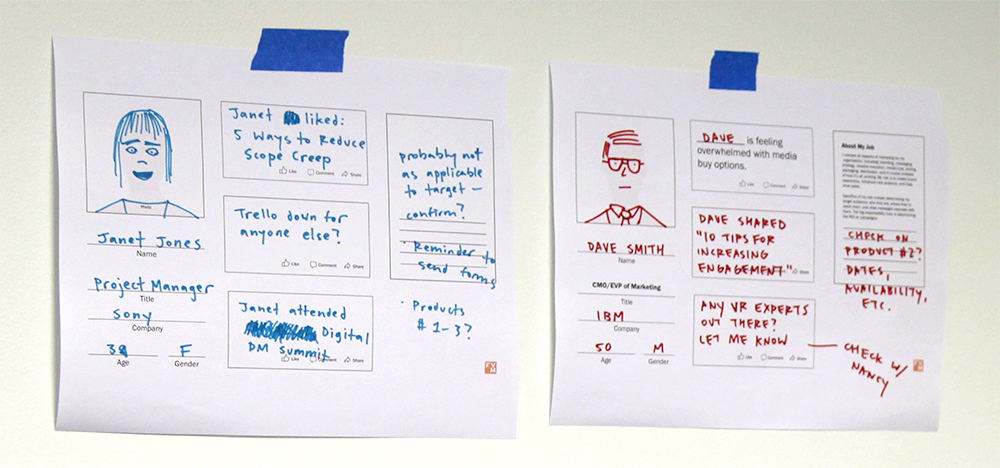 Photo
Janet Jones
Name
Project Manager
Title
Sony
Company
F
Age
Gender
Janet liked:
5 Ways to Reduce
Scope Creep
Like Comment Share
Trello down for
anyone else?
Like Comment Share
Janet attended
Digital
DM Summit
Like Comment Share
probably not
as applicable
to target –
confirm?
· Reminder to
send forms
· Products
# 1-3?
DAVE SMITH
Name
CMO/EVP of Marketing
Title
IBM
Company
50
M
Age
Gender
DAVE is feeling
overwhelmed with media
buy options.
Like Comment Share
DAVE SHARED
"10 TIPS FOR
INCREASING
ENGAGEMENT"
Share
ANY VR EXPERTS
OUT THERE?
LET ME KNOW
Like Comment Share
About My Job
CHECK ON
PRODUCT #2?
DATES,
AVAILABILITY,
ETC.
CHECK W/
NANCY